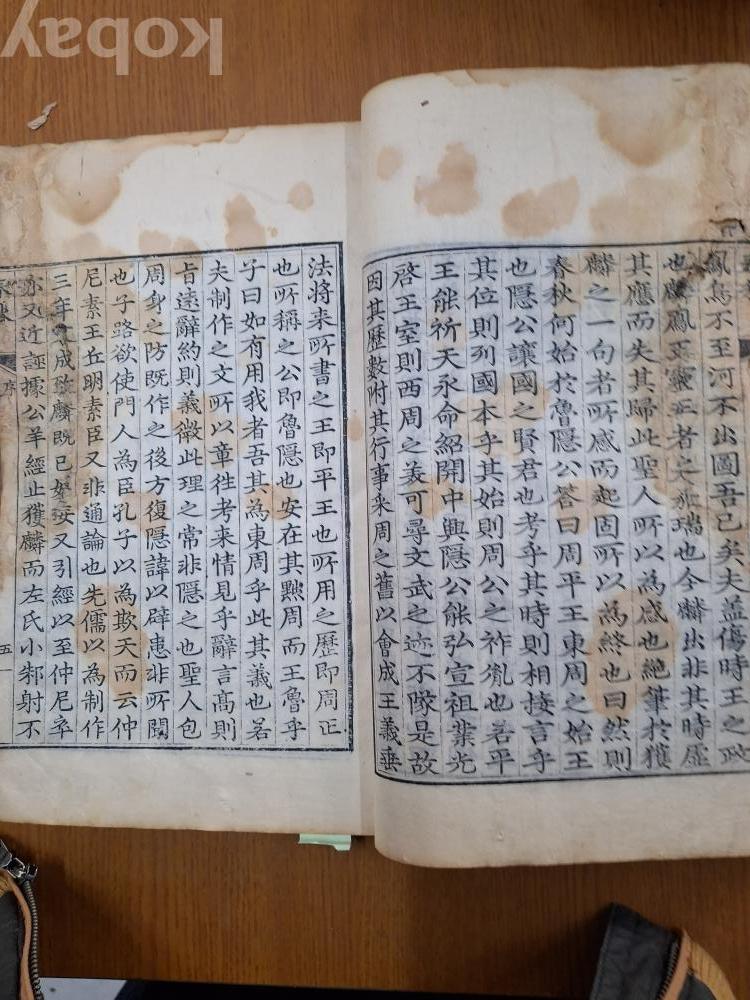 kobay
鳳鳥不至河不出圖吾已矣夫蓋傷時王之政
也麟鳳五靈王者之嘉瑞也今麟出非其時虛
其應而失其歸此聖人所以為感也絕筆於獲
麟之一句者所感而起固所以為終也曰然則
春秋何始於魯隱公答曰周平王東周之始王
也隱公讓國之賢君也考乎其時則相接言乎
其位則列國本乎其始則周公之祚胤也若平
王能祈天永命紹開中興隱公能弘宣祖業光
啓王室則西周之美可尋文武之迹不隊是故
因其歷數附其行事采周之舊以會成王義垂
法將来所書之王即平王也所用之歷即周正
也所稱之公即魯隱也安在其黜周而王魯乎
子曰如有用我者吾其為東周乎此其義也若
夫制作之文所以章徃考来情見乎辭言高則
旨遠辭約則義微此理之常非隱之也聖人包
周身之防既作之後方復隱諱以辟患非所聞
也子路欲使門人為臣孔子以為欺天而云仲
尼素王丘明素臣又非通論也先儒以為制作
三年文成致麟既已妖妄又引經以至仲尼卒
亦又近誣據公羊經止獲麟而左氏小邾射不
序
五